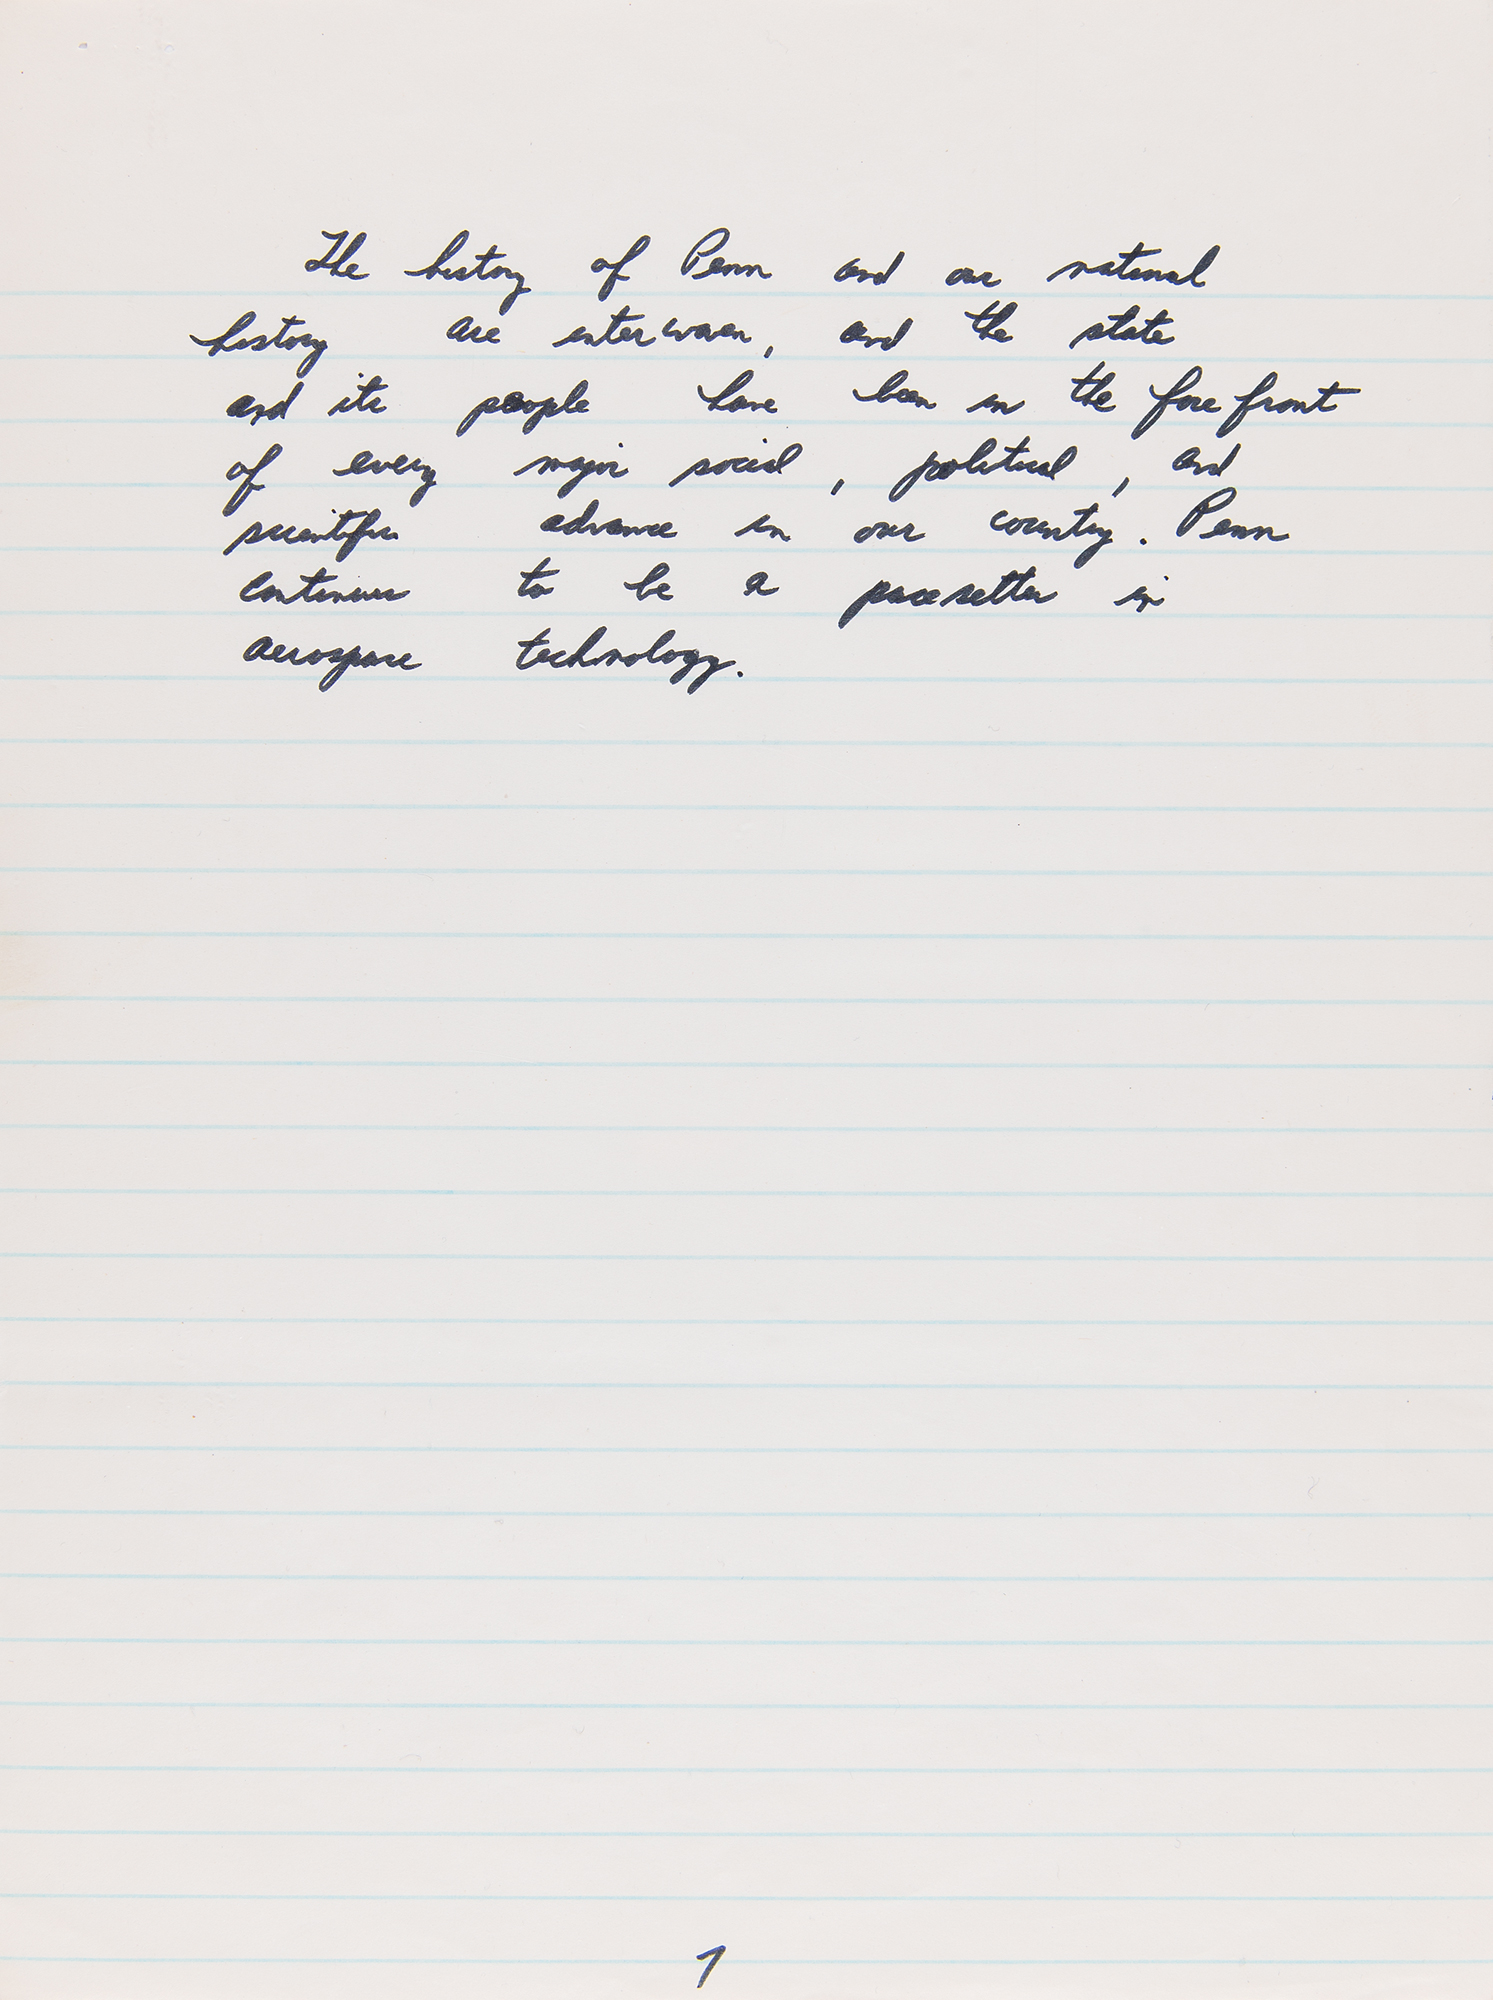 The history of Penn and our national
history are interwoven, and the state
and its people have been in the forefront
of every major social, political, and
scientific advance in our country. Penn
continues to be a pacesetter in
aerospace technology.
7